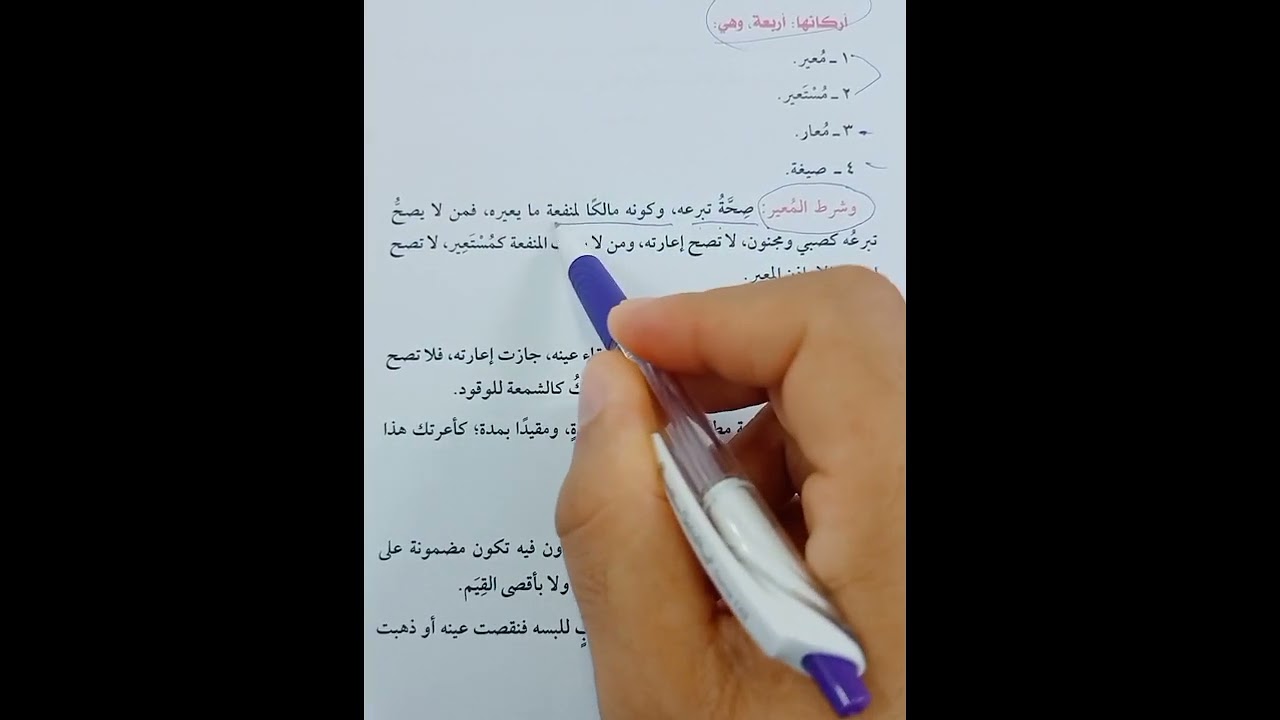 أركانها: أربعة، وهي:
١ ـ مُعير.
٢ ـ مُسْتَعير.
٣ ـ مُعار.
٤ ـ صيغة.
وشرط المُعير: صِحَّةُ تبرعه، وكونه مالكًا لمنفعة ما يعيره، فمن لا يصحُّ
تبرعُه كصبي ومجنون، لا تصح إعارته، ومن لا المنفعة كمُسْتَعِير، لا تصح
المعير.
عينه، جازت إعارته، فلا تصح
كالشمعة للوقود.
ومقيدًا بمدة؛ كأعرتك هذا
فيه تكون مضمونة على
ولا بأقصى القِيَم.
للبسه فنقصت عينه أو ذهبت